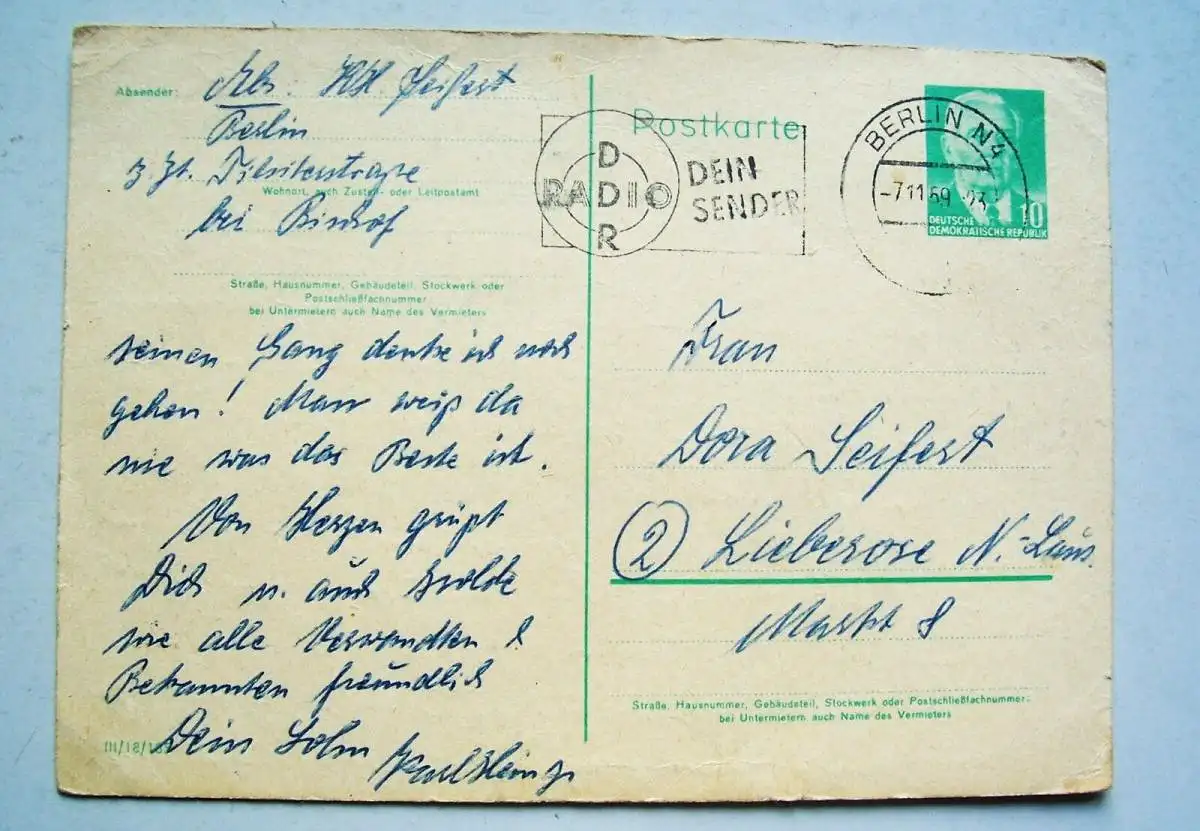 Absender: Abs. KH. Seifert
Berlin
z. Zt. Tilsiterstraße
Wohnort, auch Zustell- oder Leitpostamt
bei
Straße, Hausnummer, Gebäudeteil, Stockwerk oder
Postschließfachnummer
bei Untermietern auch Name des Vermieters
seinen Gang denke ich noch
gehen! Man weiß da
nie was das Beste ist.
Von Herzen grüßt
Dich u. auch Isolde
wie alle Verwandten &
Bekannten freundlich
Dein Sohn
Karl Heinz
III/18/185
Postkarte
RADIO
DDR
DEIN
SENDER
BERLIN N4
-7.11.59 -23
10
DEUTSCHE
DEMOKRATISCHE REPUBLIK
Frau
Dora Seifert
(2) Lieberose N.-Laus.
Markt 8
Straße, Hausnummer, Gebäudeteil, Stockwerk oder Postschließfachnummer;
bei Untermietern auch Name des Vermieters